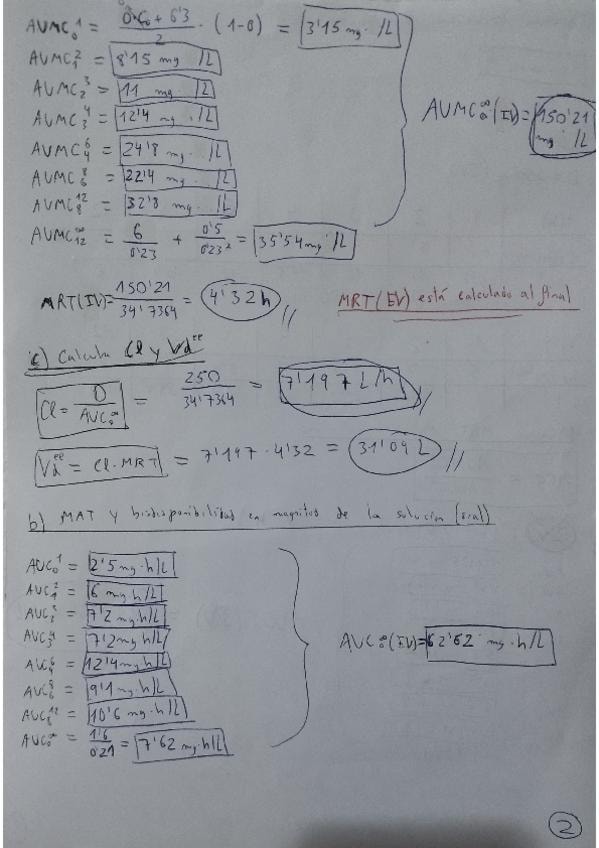 AUMC₀¹ = (0·C₀ + 6'3)/2 · (1-0) = 3'15 mg /L
AUMC₁² = 8'15 mg /L
AUMC₂³ = 11 mg /L
AUMC₃⁴ = 12'4 mg /L
AUMC₄⁶ = 24'8 mg /L
AUMC₆⁸ = 22'4 mg /L
AUMC₈¹² = 32'8 mg /L
AUMC₁₂^∞ = 6/0'23 + 0'5/0'23² = 35'54 mg /L
AUMC₀^∞ (IV) = 150'21 mg /L
MRT(IV) = 150'21/34'7364 = 4'32 h //
MRT(EV) está calculado al final
c) Calcula Cl y Vd^ee
Cl = D/AUC₀^∞ = 250/34'7364 = 7'197 L/h //
Vd^ee = Cl·MRT = 7'197 · 4'32 = 31'09 L //
b) MAT y biodisponibilidad en magnitud de la solución (oral)
AUC₀¹ = 2'5 mg·h/L
AUC₁² = 6 mg·h/L
AUC₂³ = 7'2 mg·h/L
AUC₃⁴ = 7'2 mg·h/L
AUC₄⁶ = 12'4 mg·h/L
AUC₆⁸ = 9'1 mg·h/L
AUC₈¹² = 10'6 mg·h/L
AUC₀^∞ = 1'6/0'21 = 7'62 mg·h/L
AUC₀^∞ (IV) = 62'62 mg·h/L
2